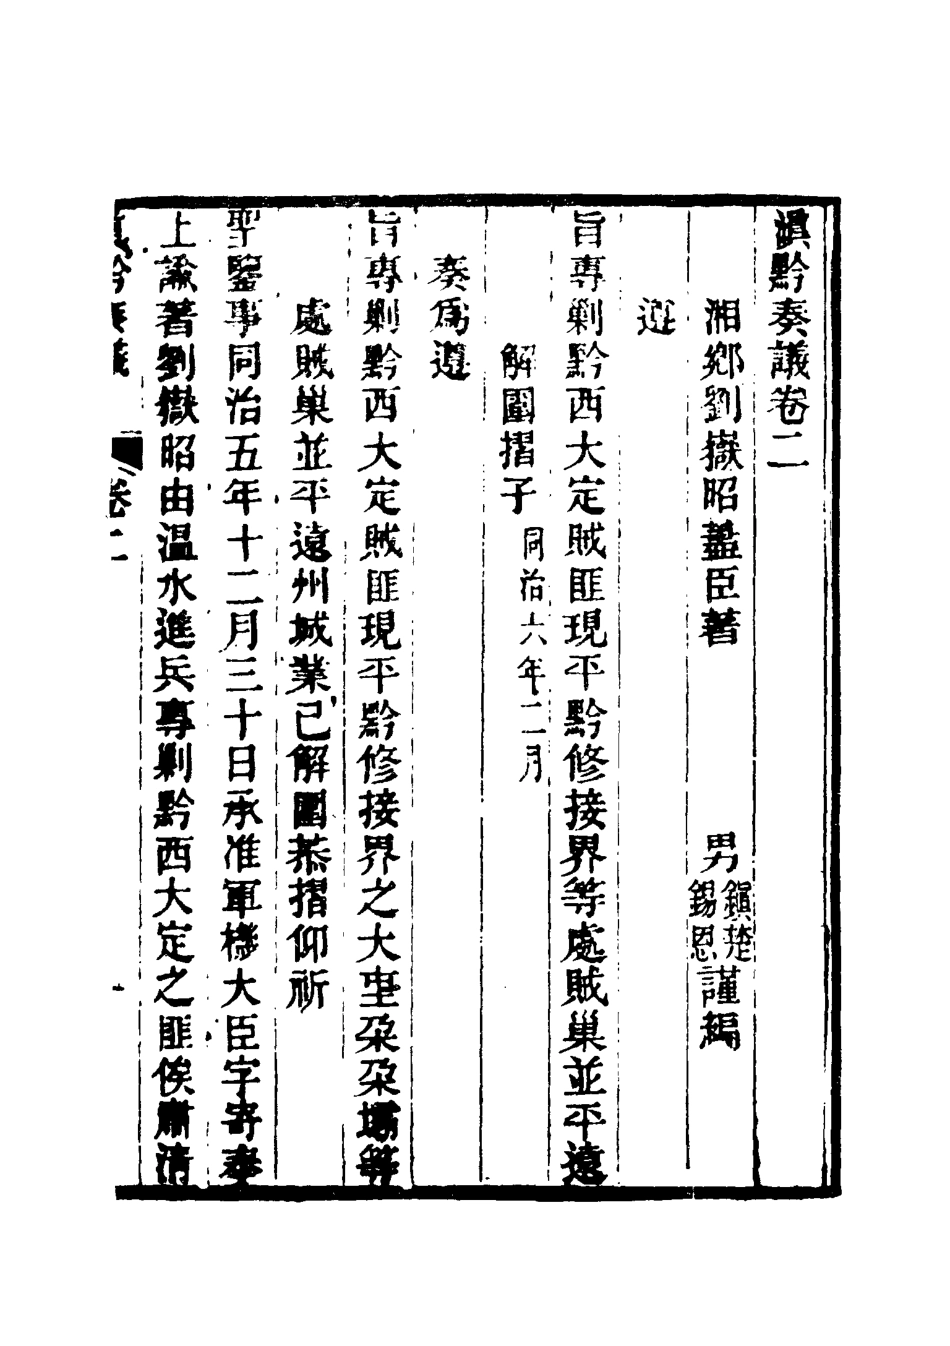 滇黔奏議卷二
湘鄉劉嶽昭藎臣著 男鎮楚錫恩謹編
遵
旨專剿黔西大定賊匪現平黔修接界等處賊巢並平遠
解圍摺子 同治六年二月
奏爲遵
旨專剿黔西大定賊匪現平黔修接界之大屯朶朶壩等
處賊巢並平遠州城業已解圍恭摺仰祈
聖鑒事同治五年十二月三十日承准軍機大臣字寄奉
上諭著劉嶽昭由溫水進兵專剿黔西大定之匪俟肅清
滇黔奏議 卷二 一